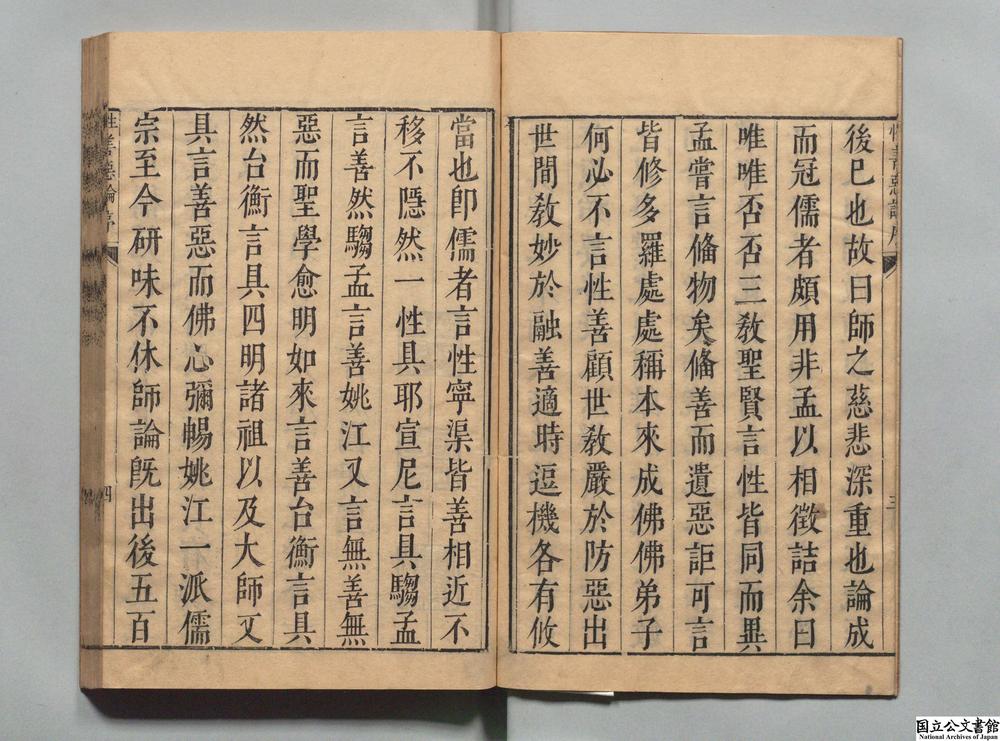 後已也故曰師之慈悲深重也論成
而冠儒者頗用非孟以相徵詰余曰
唯唯否否三敎聖賢言性皆同而異
孟嘗言偹物矣偹善而遺惡詎可言
皆修多羅處處稱本來成佛佛弟子
何必不言性善顧世敎嚴於防惡出
世間敎妙於融善適時逗機各有攸
三
性善惡論序
四
當也卽儒者言性寧渠皆善相近不
移不隱然一性具耶宣尼言具騶孟
言善然騶孟言善姚江又言無善無
惡而聖學愈明如來言善台衡言具
然台衡言具四明諸祖以及大師又
具言善惡而佛心彌暢姚江一派儒
宗至今硏味不休師論旣出後五百
国立公文書館
National Archives of Japan